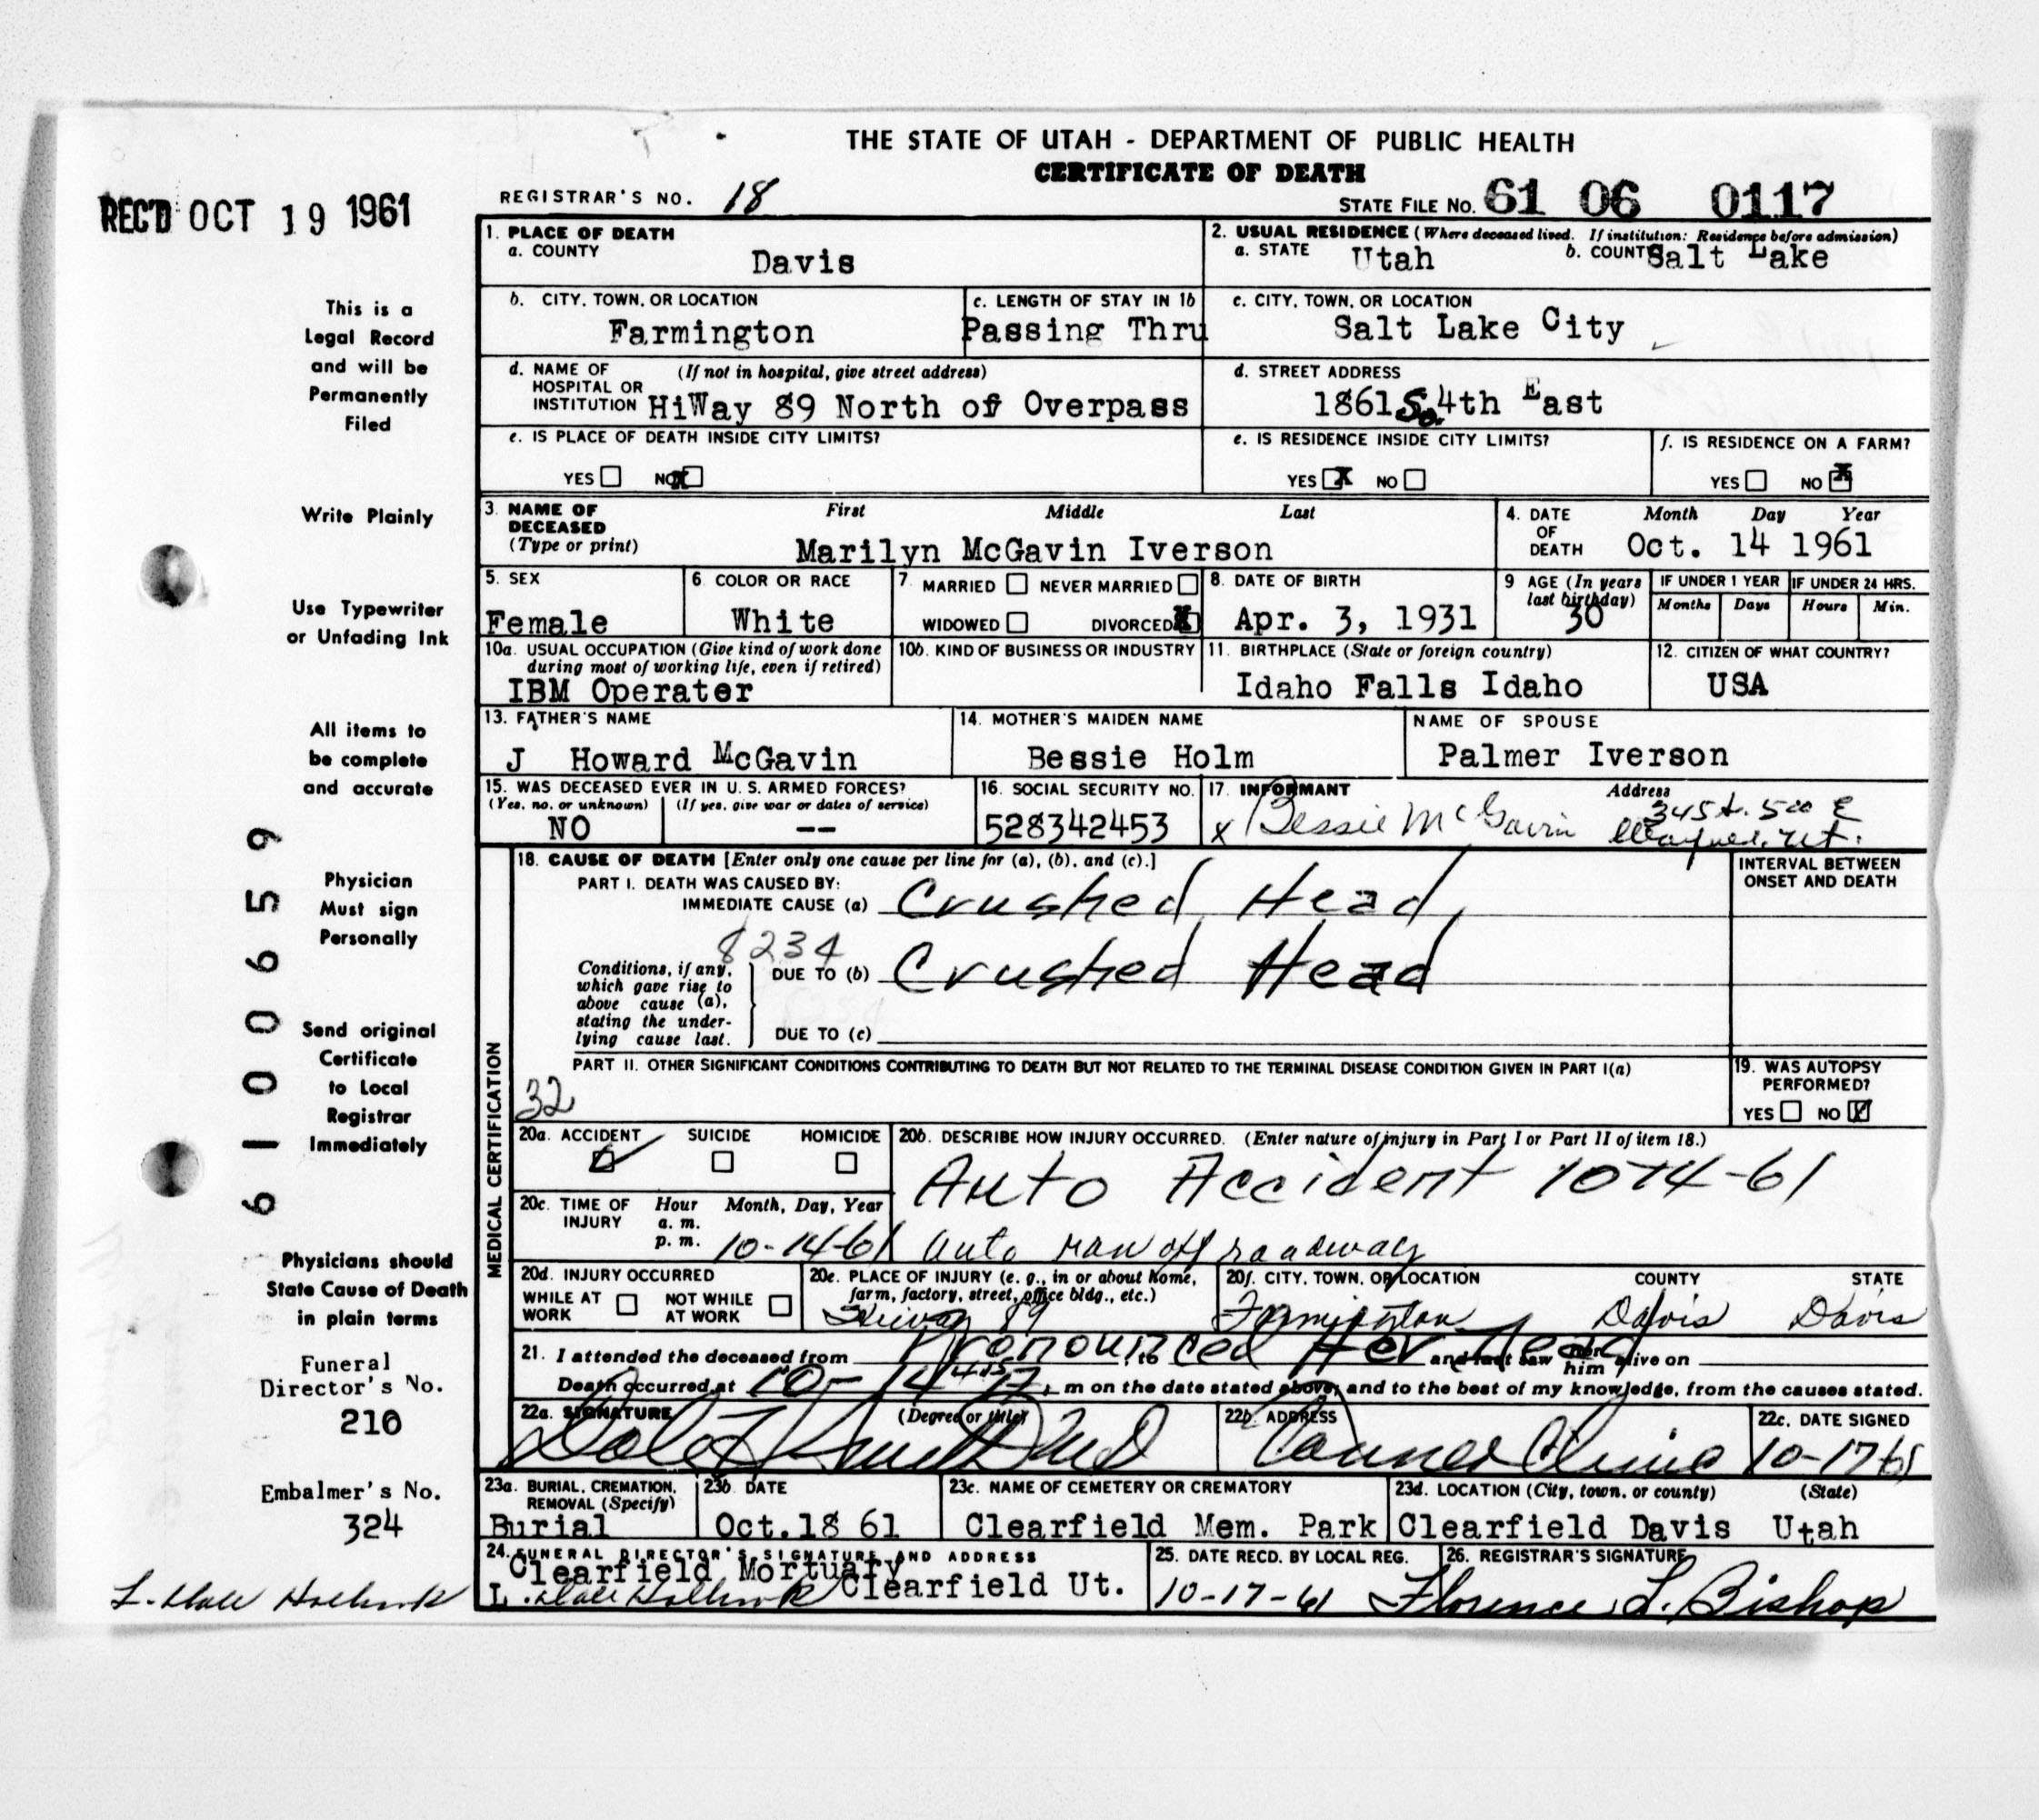 THE STATE OF UTAH - DEPARTMENT OF PUBLIC HEALTH
CERTIFICATE OF DEATH
REC'D OCT 19 1961
REGISTRAR'S NO. 18
STATE FILE NO. 61 06 0117
1. PLACE OF DEATH
a. COUNTY
Davis
2. USUAL RESIDENCE (Where deceased lived. If institution: Residence before admission)
a. STATE Utah b. COUNTY Salt Lake
b. CITY, TOWN, OR LOCATION
Farmington
c. LENGTH OF STAY IN 1b
Passing Thru
c. CITY, TOWN, OR LOCATION
Salt Lake City
d. NAME OF HOSPITAL OR INSTITUTION (If not in hospital, give street address)
HiWay 89 North of Overpass
d. STREET ADDRESS
1861 So. 4th East
e. IS PLACE OF DEATH INSIDE CITY LIMITS?
YES NO X
e. IS RESIDENCE INSIDE CITY LIMITS?
YES X NO
f. IS RESIDENCE ON A FARM?
YES NO X
3. NAME OF DECEASED (Type or print)
First Middle Last
Marilyn McGavin Iverson
4. DATE OF DEATH
Month Day Year
Oct. 14 1961
5. SEX
Female
6. COLOR OR RACE
White
7. MARRIED NEVER MARRIED
WIDOWED DIVORCED X
8. DATE OF BIRTH
Apr. 3, 1931
9 AGE (In years last birthday)
30
IF UNDER 1 YEAR
Months Days
IF UNDER 24 HRS.
Hours Min.
10a. USUAL OCCUPATION (Give kind of work done during most of working life, even if retired)
IBM Operater
10b. KIND OF BUSINESS OR INDUSTRY
11. BIRTHPLACE (State or foreign country)
Idaho Falls Idaho
12. CITIZEN OF WHAT COUNTRY?
USA
13. FATHER'S NAME
J Howard McGavin
14. MOTHER'S MAIDEN NAME
Bessie Holm
NAME OF SPOUSE
Palmer Iverson
15. WAS DECEASED EVER IN U. S. ARMED FORCES?
(Yes, no, or unknown) (If yes, give war or dates of service)
NO --
16. SOCIAL SECURITY NO.
528342453
17. INFORMANT Address
x Bessie McGavin 345 500 E
Ut.
MEDICAL CERTIFICATION
18. CAUSE OF DEATH [Enter only one cause per line for (a), (b), and (c).]
INTERVAL BETWEEN ONSET AND DEATH
PART I. DEATH WAS CAUSED BY:
IMMEDIATE CAUSE (a) Crushed Head
8234
Conditions, if any, which gave rise to above cause (a), stating the underlying cause last.
DUE TO (b) Crushed Head
DUE TO (c)
PART II. OTHER SIGNIFICANT CONDITIONS CONTRIBUTING TO DEATH BUT NOT RELATED TO THE TERMINAL DISEASE CONDITION GIVEN IN PART I(a)
32
19. WAS AUTOPSY PERFORMED?
YES NO
20a. ACCIDENT SUICIDE HOMICIDE
20b. DESCRIBE HOW INJURY OCCURRED. (Enter nature of injury in Part I or Part II of item 18.)
Auto Accident 10-14-61
auto ran off roadway
20c. TIME OF INJURY
Hour Month, Day, Year
a. m.
p. m. 10-14-61
20d. INJURY OCCURRED
WHILE AT WORK NOT WHILE AT WORK
20e. PLACE OF INJURY (e. g., in or about home, farm, factory, street, office bldg., etc.)
Hiway 89
20f. CITY, TOWN, OR LOCATION COUNTY STATE
Farmington Davis Davis
21. I attended the deceased from Pronounced Her dead to and last saw her him alive on
Death occurred at 10-14 m on the date stated above, and to the best of my knowledge, from the causes stated.
22a. SIGNATURE (Degree or title)
22b. ADDRESS
Tanner Clinic
22c. DATE SIGNED
10-17-61
23a. BURIAL, CREMATION, REMOVAL (Specify)
Burial
23b DATE
Oct.18 61
23c. NAME OF CEMETERY OR CREMATORY
Clearfield Mem. Park
23d. LOCATION (City, town, or county) (State)
Clearfield Davis Utah
24. FUNERAL DIRECTOR'S SIGNATURE AND ADDRESS
Clearfield Mortuary
L. Dale Holbrook Clearfield Ut.
25. DATE RECD. BY LOCAL REG.
10-17-61
26. REGISTRAR'S SIGNATURE
Florence L. Bishop
This is a
Legal Record
and will be
Permanently
Filed
Write Plainly
Use Typewriter
or Unfading Ink
All items to
be complete
and accurate
Physician
Must sign
Personally
Send original
Certificate
to Local
Registrar
Immediately
Physicians should
State Cause of Death
in plain terms
Funeral
Director's No.
210
Embalmer's No.
324
L. Dale Holbrook
6100659